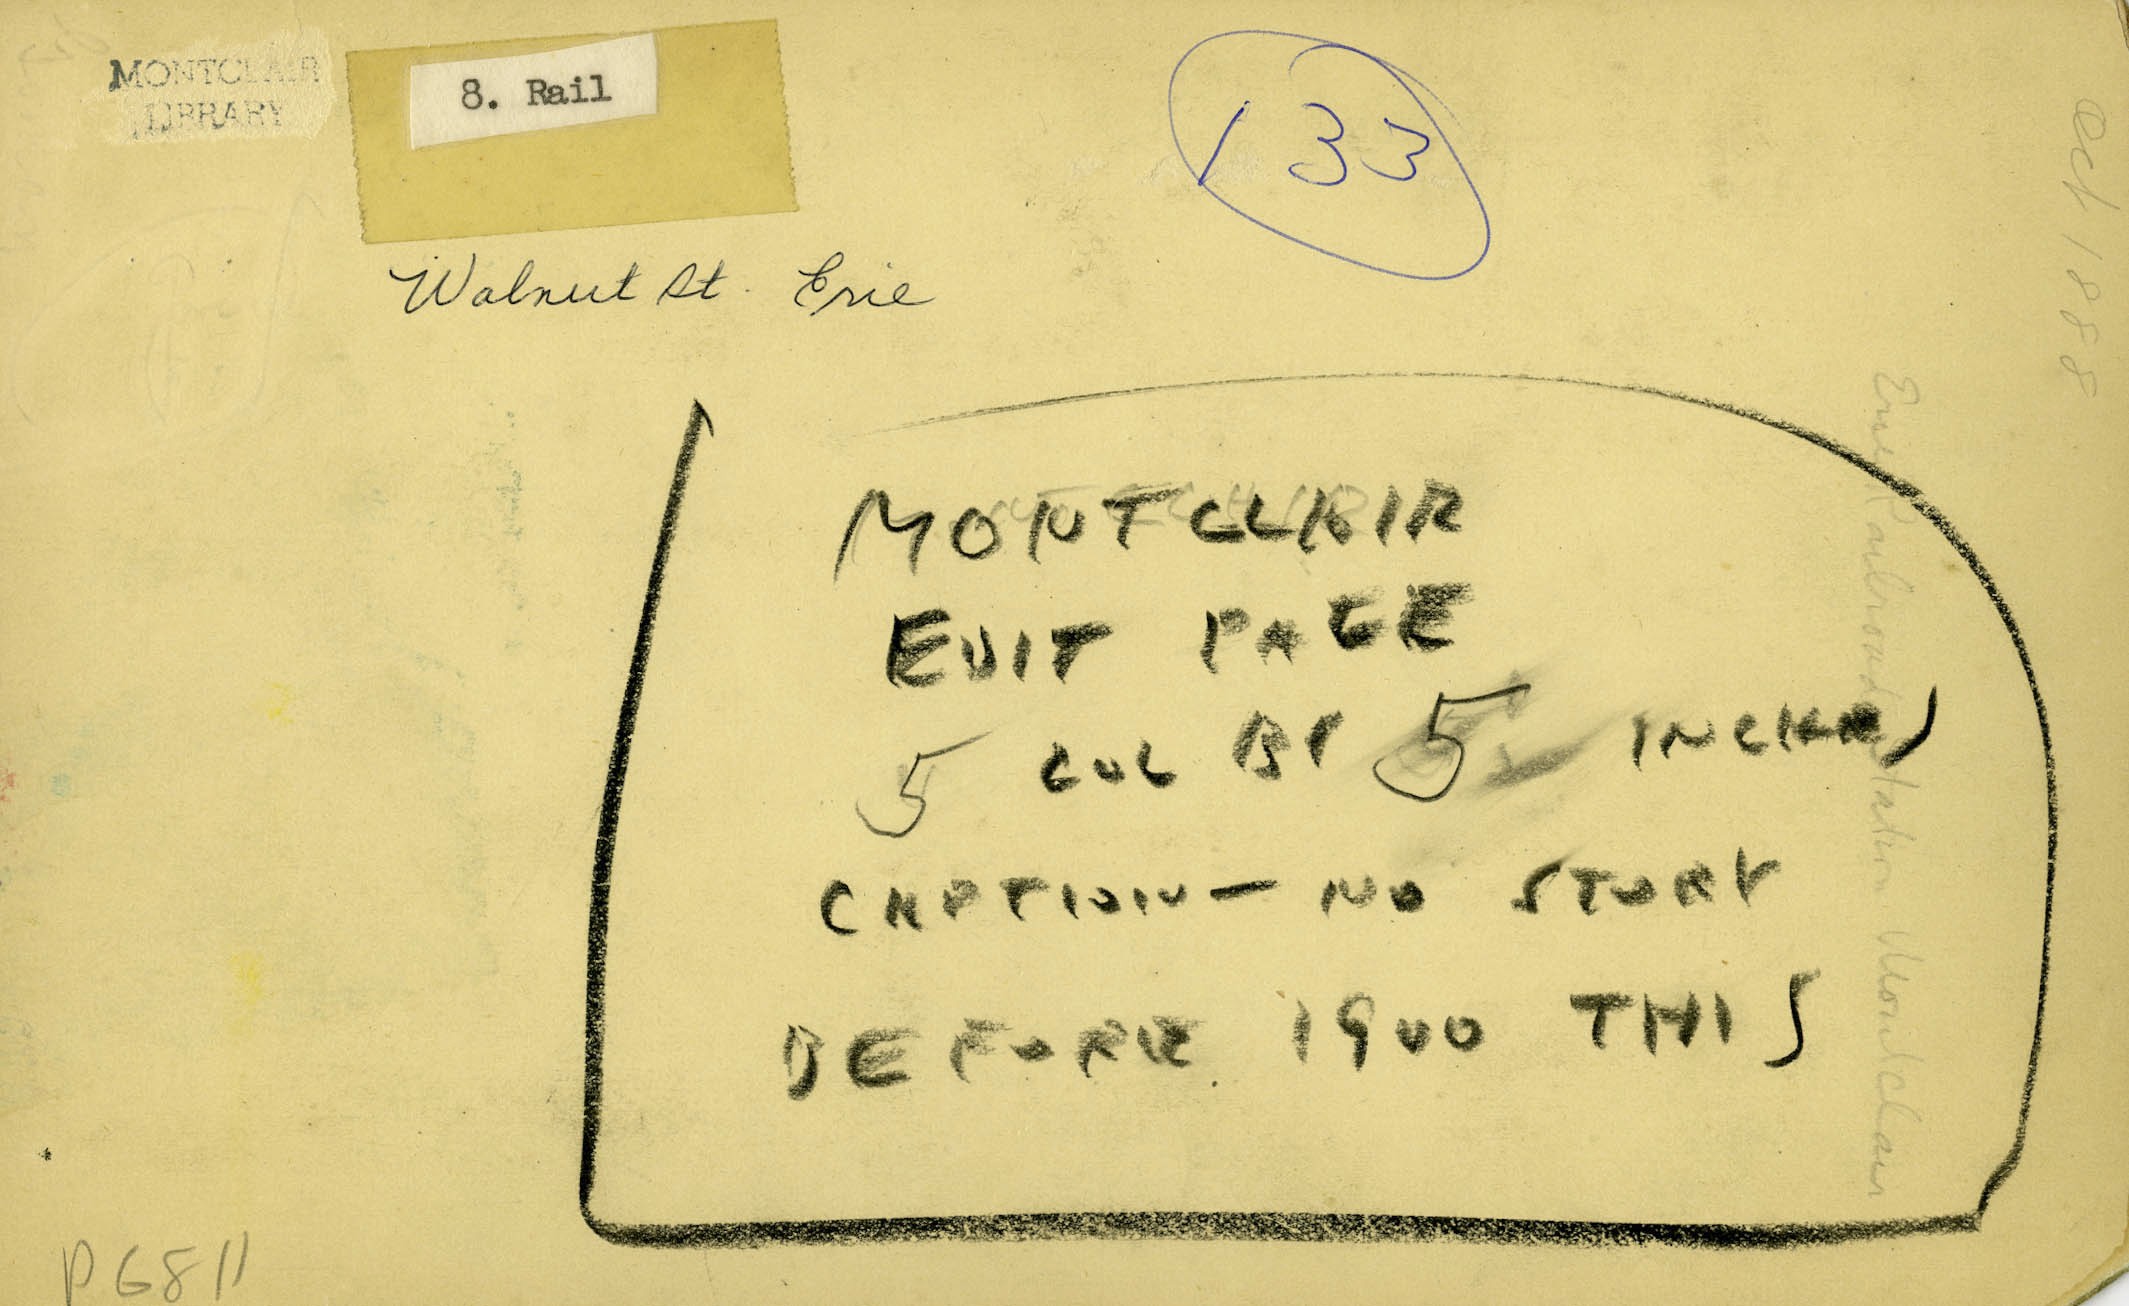 MONTCLAIR
LIBRARY
8. Rail
133
Walnut St. Erie
Oct 1888
Erie Railroad Station Montclair
MONTCLAIR
EDIT PAGE
5 COL BY 5 INCHES
CAPTION — NO STORY
BEFORE 1900 THIS
P6811